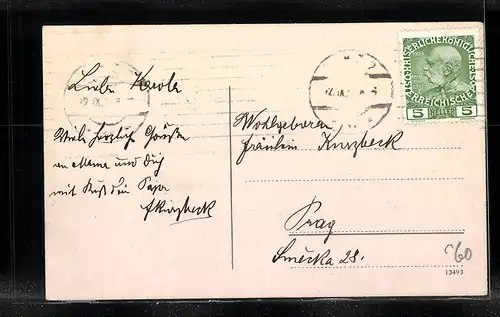 Liebe Karola
Viele herzliche Grüße
an Mama und Dich
mit Kuß Dein Papa
Kurzbeck
Wohlgeboren
Fräulein Kurzbeck
Prag
Smečka 28.
KAISERLICHE KÖNIGLICHE
ÖSTERREICHISCHE
5 HELLER 5
60
13493